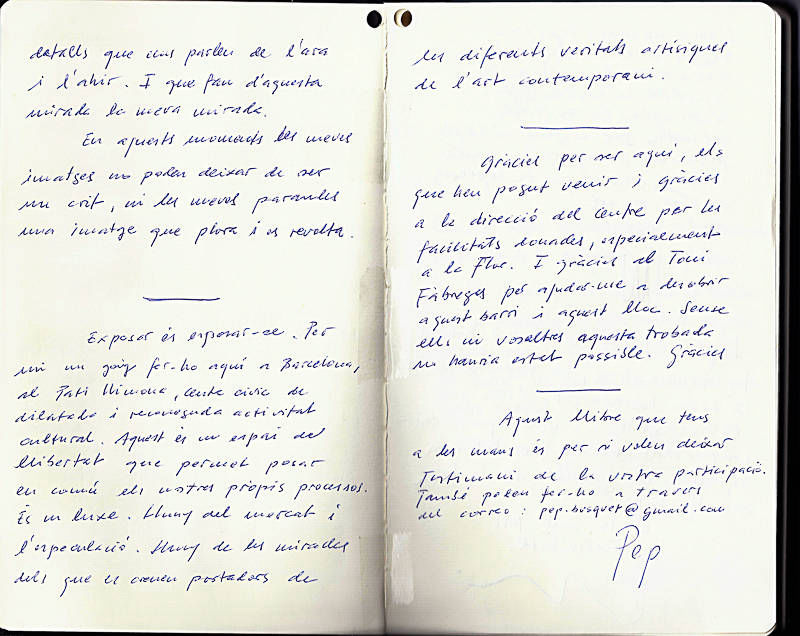 detalls que ens parlen de l'ara
i l'ahir. I que fan d'aquesta
mirada la meva mirada.
En aquests moments les meves
imatges no poden deixar de ser
un crit, ni les meves paraules
una imatge que plora i es revolta.
Exposar és exposar-se. Per
mi un goig fer-ho aquí a Barcelona,
al Pati Llimona, centre cívic de
dilatada i reconeguda activitat
cultural. Aquest és un espai de
llibertat que permet posar
en comú els nostres propis processos.
És un luxe. Lluny del mercat i
l'especulació. Lluny de les mirades
dels que es creuen portadors de
les diferents veritats artísiques
de l'art contemporani.
Gràcies per ser aquí, els
que heu pogut venir i gràcies
a la direcció del centre per les
facilitats donades, especialment
a la Flor. I gràcies al Toni
Fàbreges per ajudar-me a descobrir
aquest barri i aquest lloc. Sense
ells ni vosaltres aquesta trobada
no hauria estat possible. Gràcies
Aquest llibre que tens
a les mans és per si voleu deixar
Testimoni de la vostra participació.
També podeu fer-ho a través
del correo: pep.busquet@gmail.com
Pep